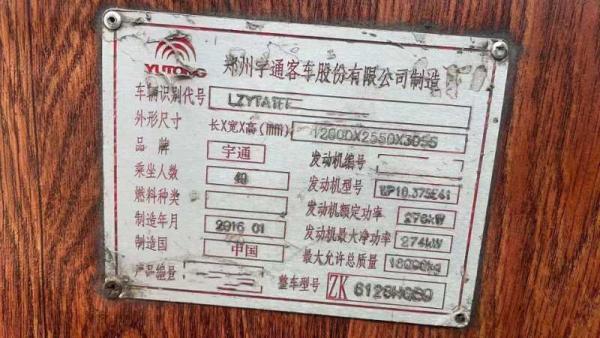 YUTONG 郑州宇通客车股份有限公司制造
车辆识别代号 LZYTATF
外形尺寸 长X宽X高(mm) 12000X2550X3955
品牌 宇通 发动机编号
乘坐人数 49 发动机型号 WP10.375E41
燃料种类 发动机额定功率 276kW
制造年月 2016 01 发动机最大净功率 274kW
制造国 中国 最大允许总质量 18000kg
产品编号 整车型号 ZK